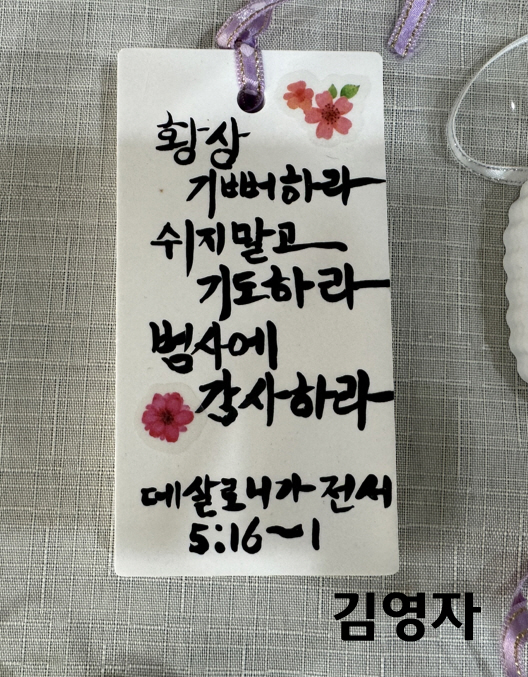 황상
기뻐하라
쉬지말고
기도하라
범사에
감사하라
데살로니가전서
5:16~1
김영자